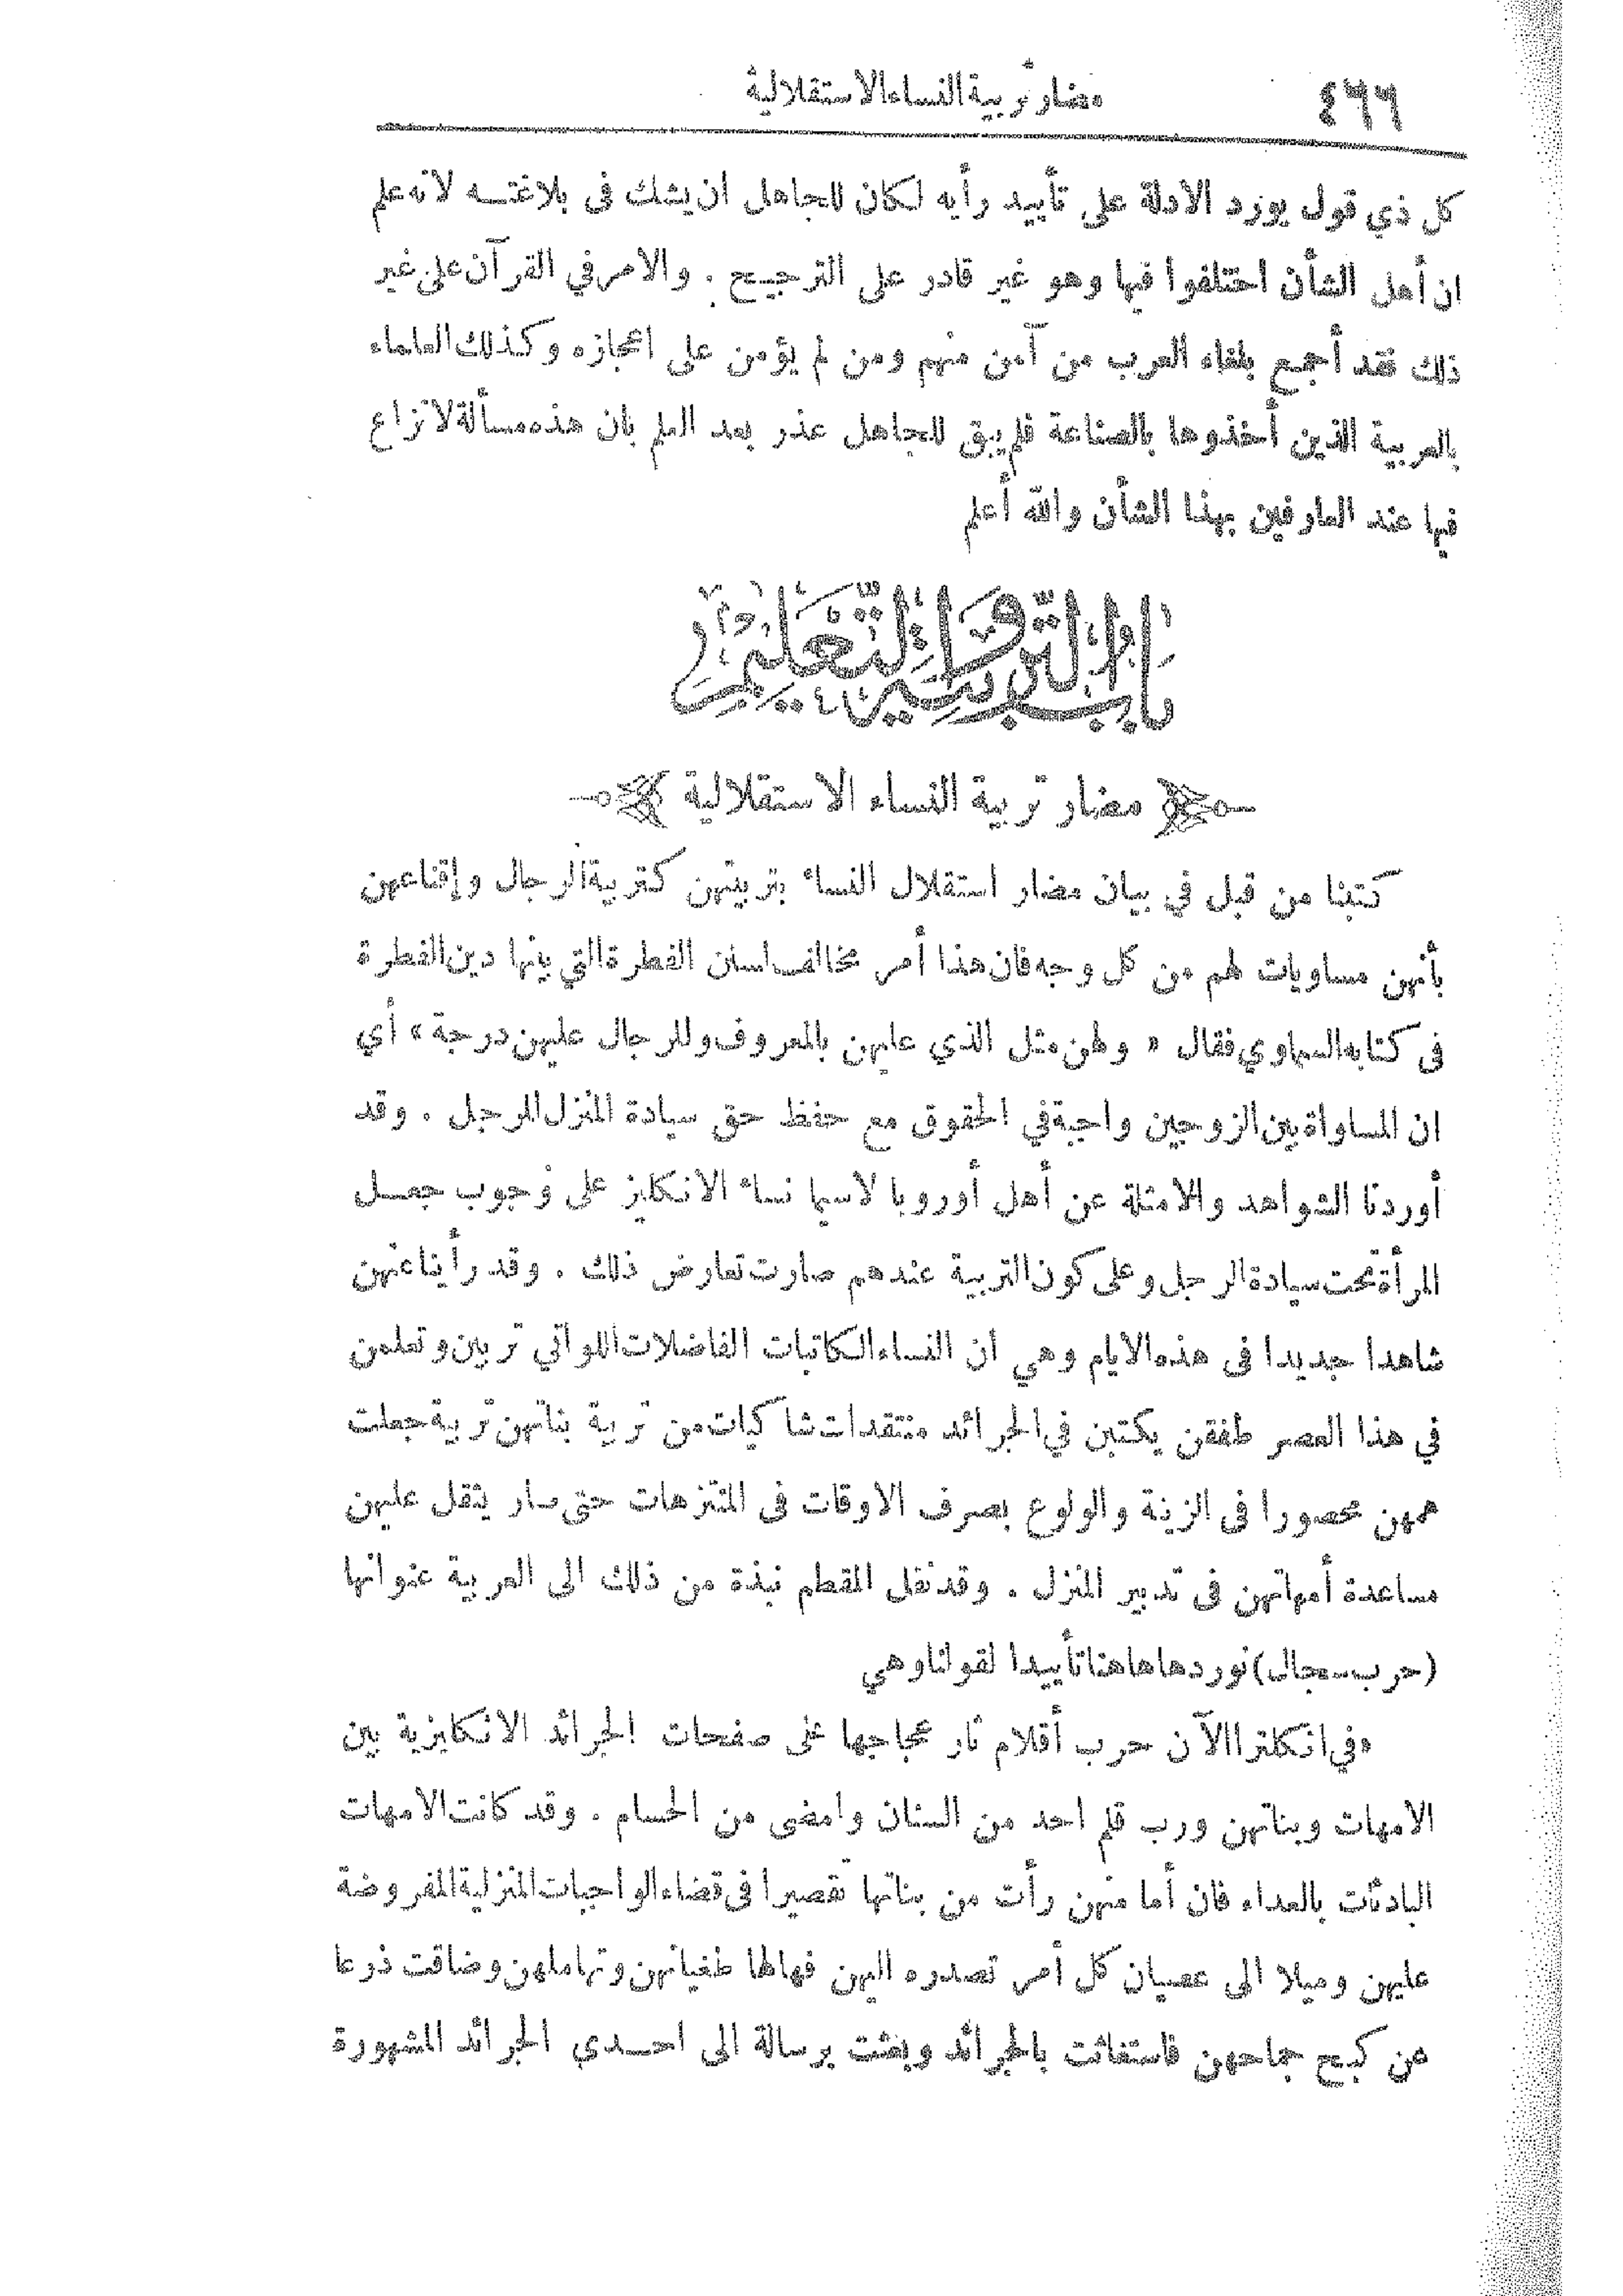 ٤٦٦
مضار تربية النساء الاستقلالية
كل ذي قول يورد الادلة على تأييد رأيه لكان للجاهل ان يشك فى بلاغته لانه علم
ان أهل الشأن اختلفوا فيها وهو غير قادر على الترجيح . والامر في القرآن على غير
ذلك فقد أجمع بلغاء العرب من آمن منهم ومن لم يؤمن على اعجازه وكذلك العلماء
بالعربية الذين أخذوها بالصناعة فلم يبق للجاهل عذر بعد العلم بان هذه مسألة لا نزاع
فيها عند العارفين بهذا الشأن والله أعلم
باب التربية والتعليم
مضار تربية النساء الاستقلالية
كتبنا من قبل في بيان مضار استقلال النساء بتربيتهن كتربية الرجال وإقناعهن
بأنهن مساويات لهم من كل وجه فان هذا أمر مخالف لسنن الفطرة التي بينها دين الفطرة
فى كتابه السماوي فقال « ولهن مثل الذي عليهن بالمعروف وللرجال عليهن درجة » أي
ان المساواة بين الزوجين واجبة في الحقوق مع حفظ حق سيادة المنزل للرجل . وقد
أوردنا الشواهد والامثلة عن أهل أوروبا لاسيما نساء الانكليز على وجوب جعل
المرأة تحت سيادة الرجل وعلى كون التربية عندهم صارت تعارض ذلك . وقد رأينا عنهن
شاهدا جديدا فى هذه الايام وهي ان النساء الكاتبات الفاضلات اللواتي تربين وتعلمن
في هذا العصر طفقن يكتبن في الجرائد منتقدات شاكيات من تربية بناتهن تربية جعلت
همهن محصورا فى الزينة والولوع بصرف الاوقات فى المتنزهات حتى صار يثقل عليهن
مساعدة أمهاتهن فى تدبير المنزل . وقد نقل المقطم نبذة من ذلك الى العربية عنوانها
(حرب سجال) نوردها هاهنا تأييدا لقولنا وهي
«في انكلترا الآن حرب أقلام ثار عجاجها على صفحات الجرائد الانكليزية بين
الامهات وبناتهن ورب قلم احد من السنان وامضى من الحسام . وقد كانت الامهات
البادئات بالعداء فان أما منهن رأت من بناتها تقصيرا فى قضاء الواجبات المنزلية المفروضة
عليهن وميلا الى عصيان كل أمر تصدره اليهن فهالها طغيانهن وتهاملهن وضاقت ذرعا
عن كبح جماحهن فاستغاثت بالجرائد وبعثت برسالة الى احدي الجرائد المشهورة